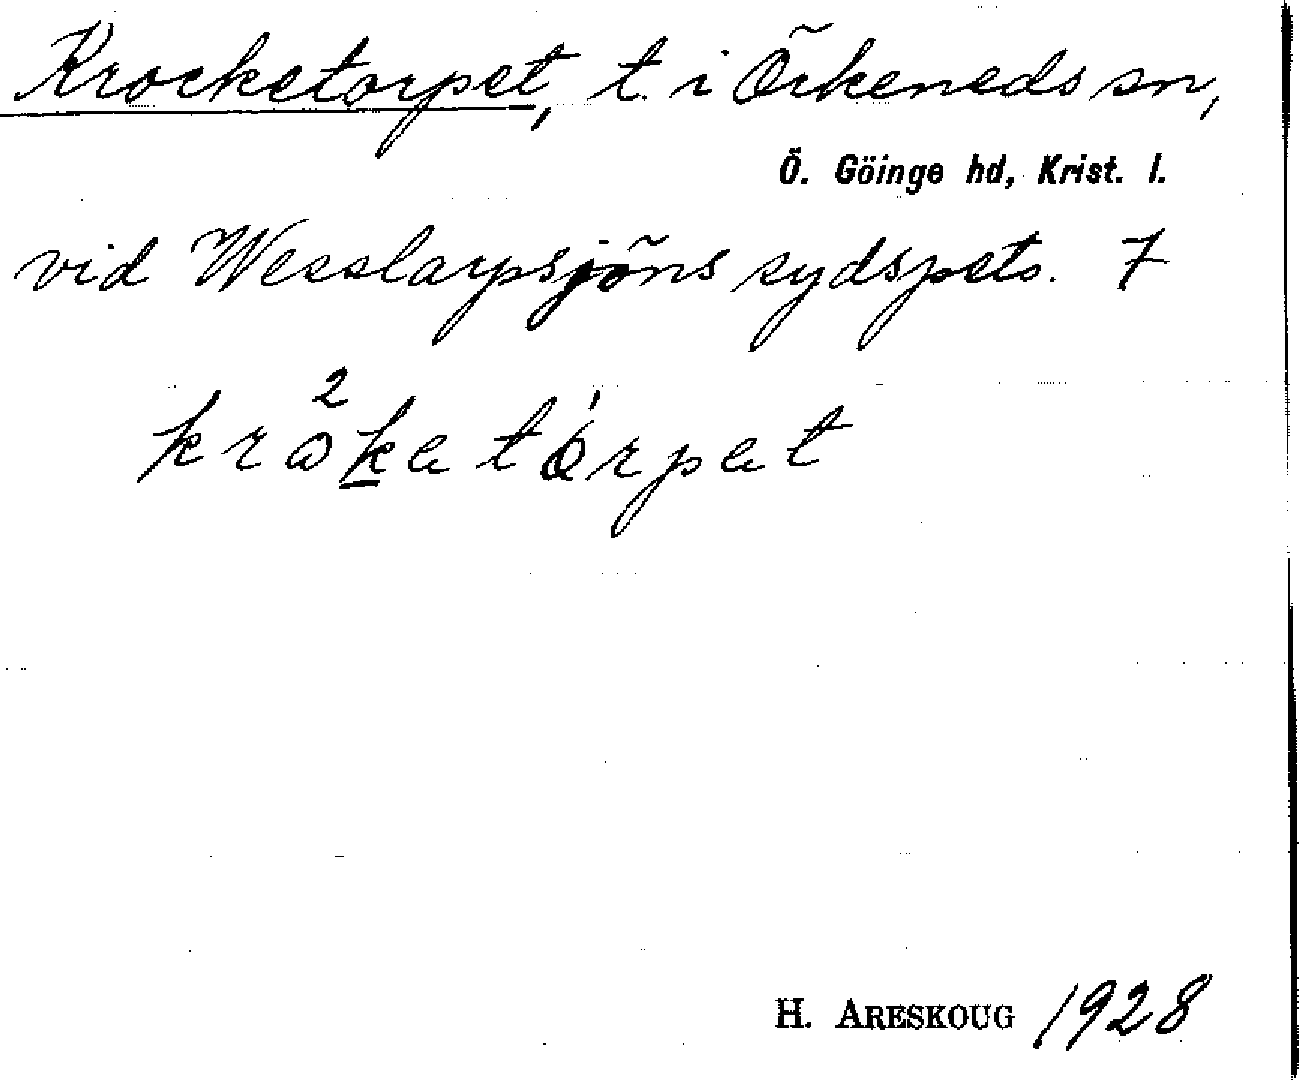 Krocketorpet, t. i Örkeneds sn,
Ö. Göinge hd, Krist. l.
vid Wesslarpsjöns sydspets. 7
kråketórpet
H. ARESKOUG 1928